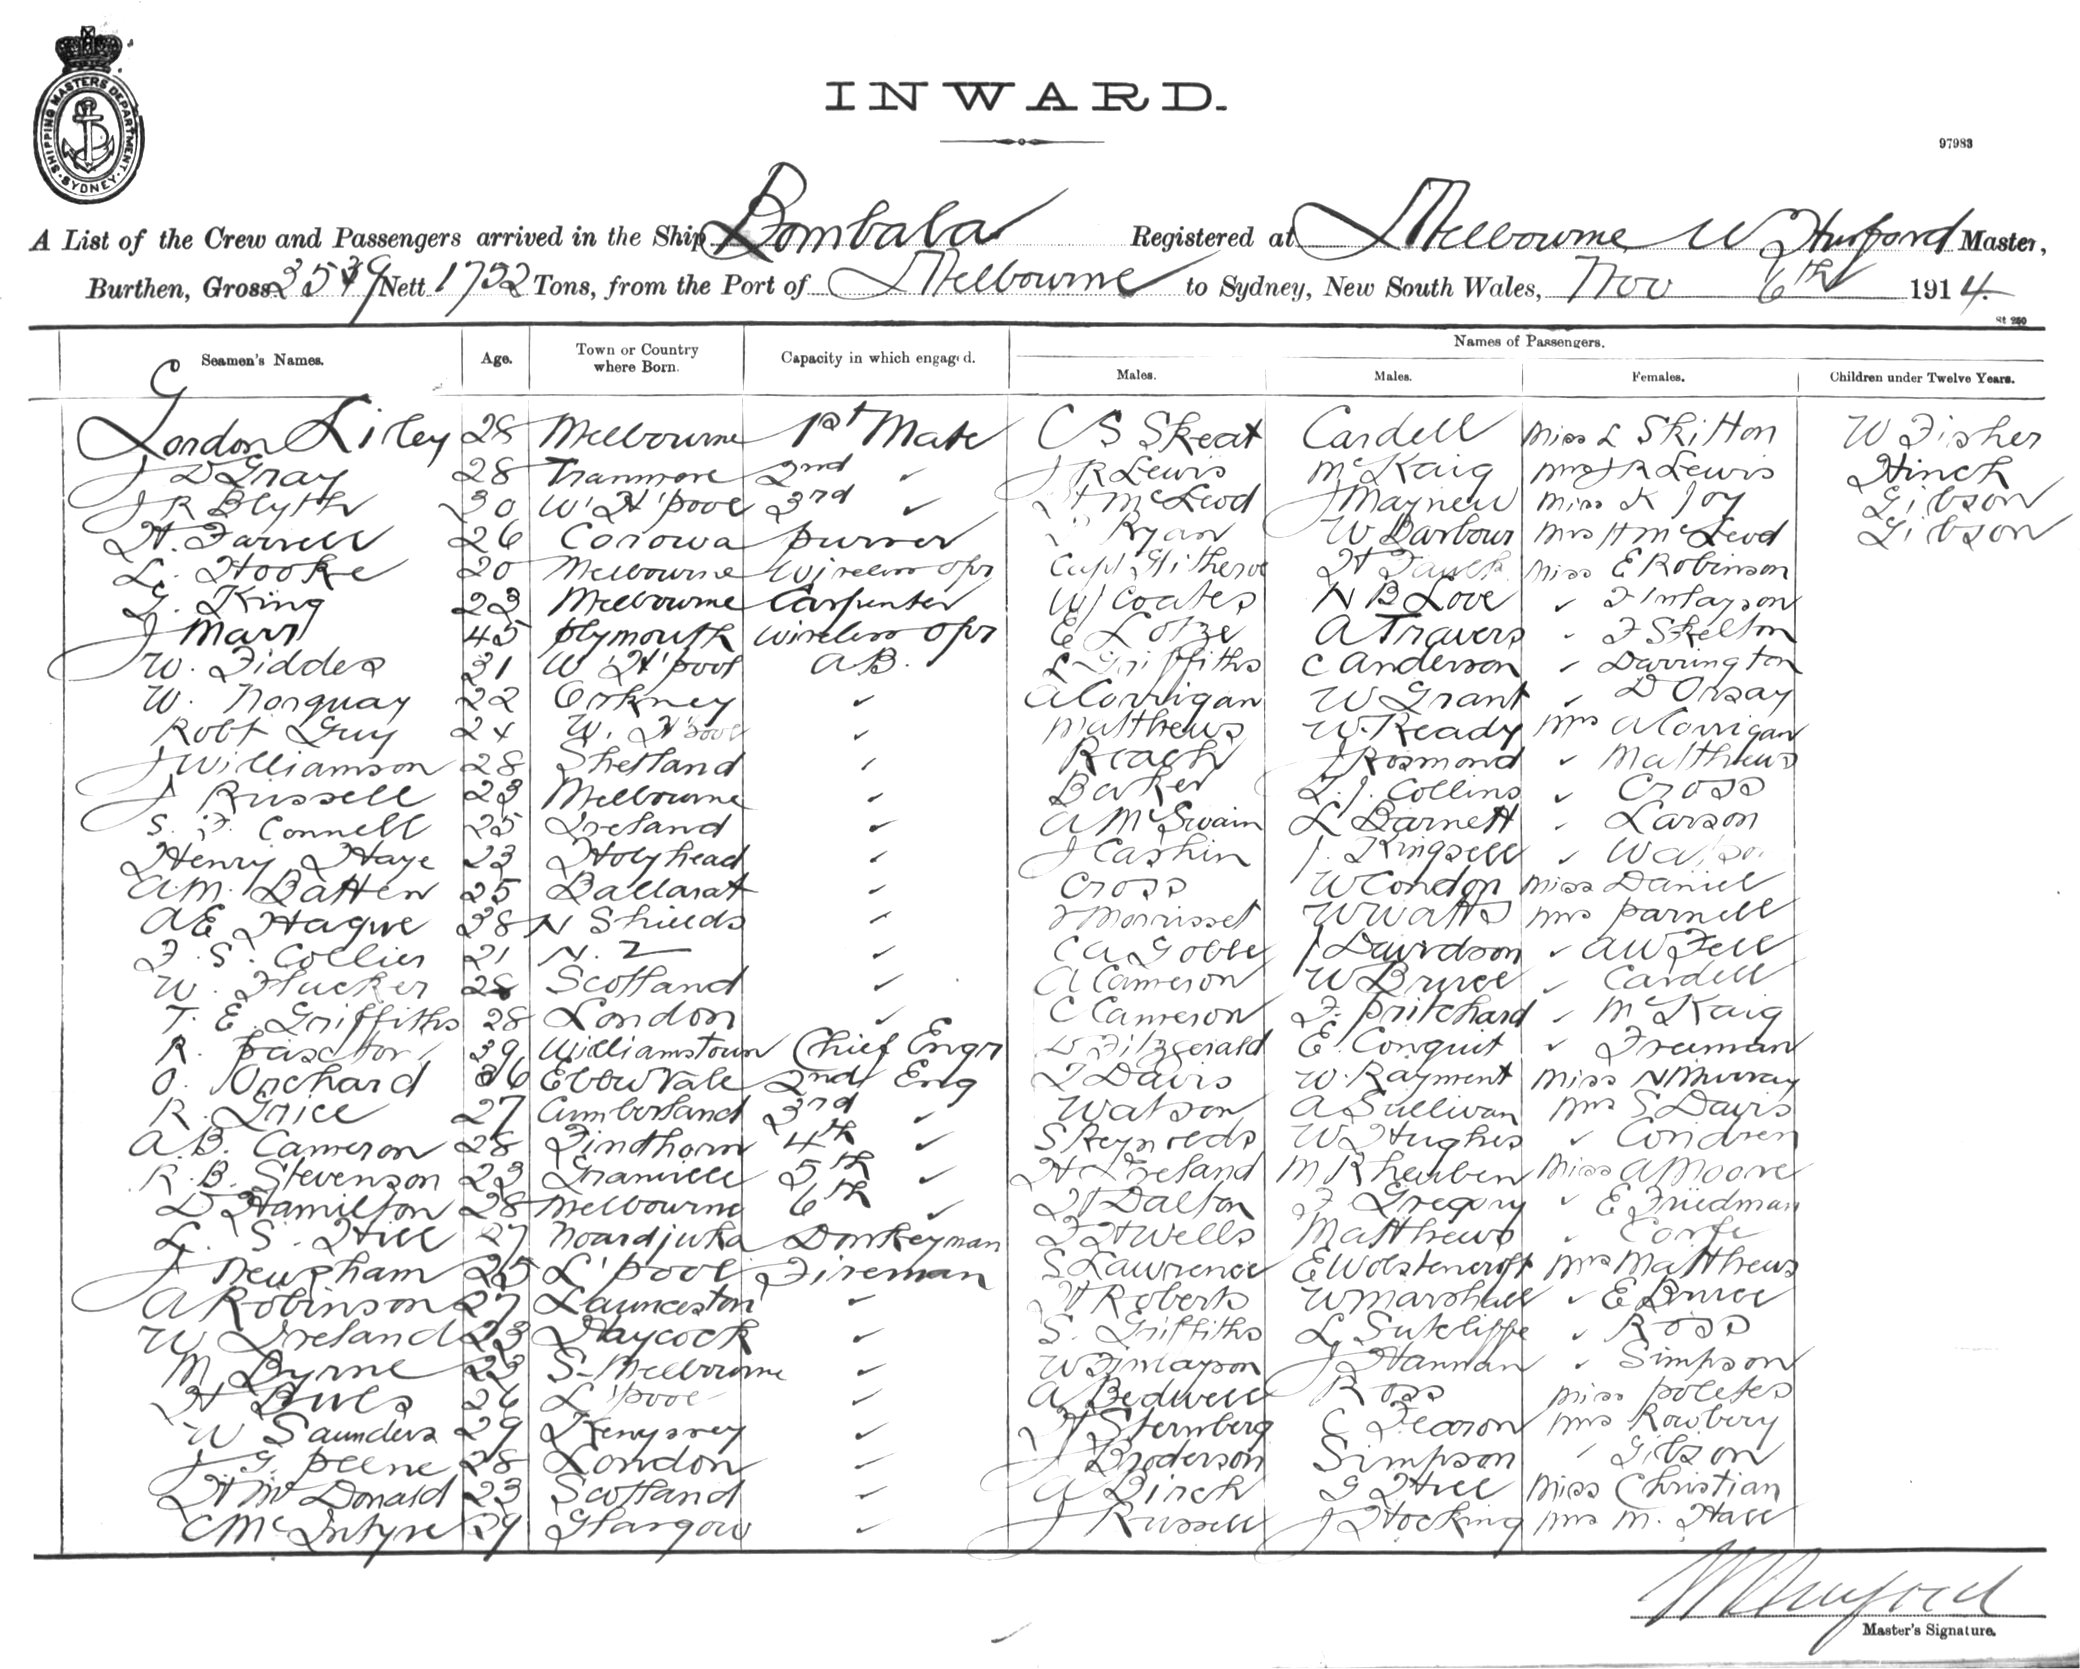 SHIPPING MASTERS DEPARTMENT SYDNEY
INWARD.
97983
A List of the Crew and Passengers arrived in the Ship Bombala Registered at Melbourne W Hurford Master,
Burthen, Gross Nett 1732 Tons, from the Port of Melbourne to Sydney, New South Wales, Nov 6th 1914.
St 250
Names of Passengers.
Seamen's Names. Age. Town or Country where Born. Capacity in which engaged. Males. Males. Females. Children under Twelve Years.
G
London Liley 28 Melbourne 1st Mate C S Skeat Cardell Miss L Skitton W Fisher
J D Gray 28 Tranmore 2nd ✓ J R Lewis McKaig Mrs J R Lewis Hinch
J R Blyth 30 W H'pool 3rd ✓ H McLeod J Mayneu Miss K Joy Gibson
H. Farrell 26 Corowa purser Ryan W Barbour Mrs H McLeod Gibson
L. Hooke 20 Melbourne Wireless Opr Capt H Miss E Robinson
G. King 23 Melbourne Carpenter W J Coates N B Love ✓ F Finlayson
J Marr 45 plymouth Wireless Opr E Lotze A Travers ✓ F Skelton
W. Fiddes 31 W H'pool AB. Griffiths C Anderson ✓ Darrington
W. Norquay 22 Orkney ✓ A Corrigan W Grant ✓ D Orsay
Robt Guy 24 W. H'pool ✓ Matthews W. Ready Mrs A Corrigan
J Williamson 28 Shetland ✓ Reach J Rosmond ✓ Matthews
J Russell 23 Melbourne ✓ Barker T. J. Collins ✓ Cross
S. F. Connell 25 Ireland ✓ A McSwain L Barnett ✓ Larson
Henry Haye 23 Holyhead ✓ J Cashin J. Kingsell ✓ Watson
A. M. Batten 25 Ballarat ✓ Cross W Condon Miss Daniel
A E Hague 38 N Shields ✓ Morrisset W Watts Mrs parnell
F. S. Collier 21 N. Z ✓ C A Goble J Davidson ✓ A W Fell
W. Flucker 28 Scotland ✓ A Cameron W Bruce ✓ Cardell
T. E. Griffiths 28 London ✓ C Cameron F. pritchard ✓ McKaig
R. pastor 39 Williamstown Chief Engr D Fitzgerald E. Conquit ✓ Freeman
O. Orchard 36 Ebbw Vale 2nd Eng T Davis W. Rayment Miss N Murray
R. Grice 27 Cumberland 3rd ✓ Watson A Sullivan Mrs S Davis
A. B. Cameron 28 Findhorn 4th ✓ S Reynolds W Hughes ✓ Condren
R. B. Stevenson 23 Granville 5th ✓ H Ireland M Rheuben Miss A Moore
D Hamilton 28 Melbourne 6th ✓ H Dalton F Gregory ✓ E Friedman
L. S. Hill 27 Noardjuka Donkeyman F H Wells Matthews ✓ Corfe
J Newsham 25 L'pool Fireman S Lawrence E Wolstencroft Mrs Matthews
A Robinson 27 Launceston ✓ H Roberts W Marshall ✓ E Bruce
W Ireland 23 Haycock ✓ S. Griffiths L Sutcliffe ✓ Ross
M Byrne 23 S- Melbourne ✓ W Finlayson J Hannan ✓ Simpson
H Buls 26 L'pool ✓ A Bedwell Ross Miss poletes
W Saunders 29 Kempsey ✓ H Sternberg C Fearon Mrs Rowbery
J G. peene 28 London ✓ J Broderson Simpson ✓ Gibson
H McDonald 23 Scotland ✓ A Birch G Hill Miss Christian
C McIntyre 29 Glasgow ✓ J Russell J Hocking Mrs M. Hall
W Hurford
Master's Signature.